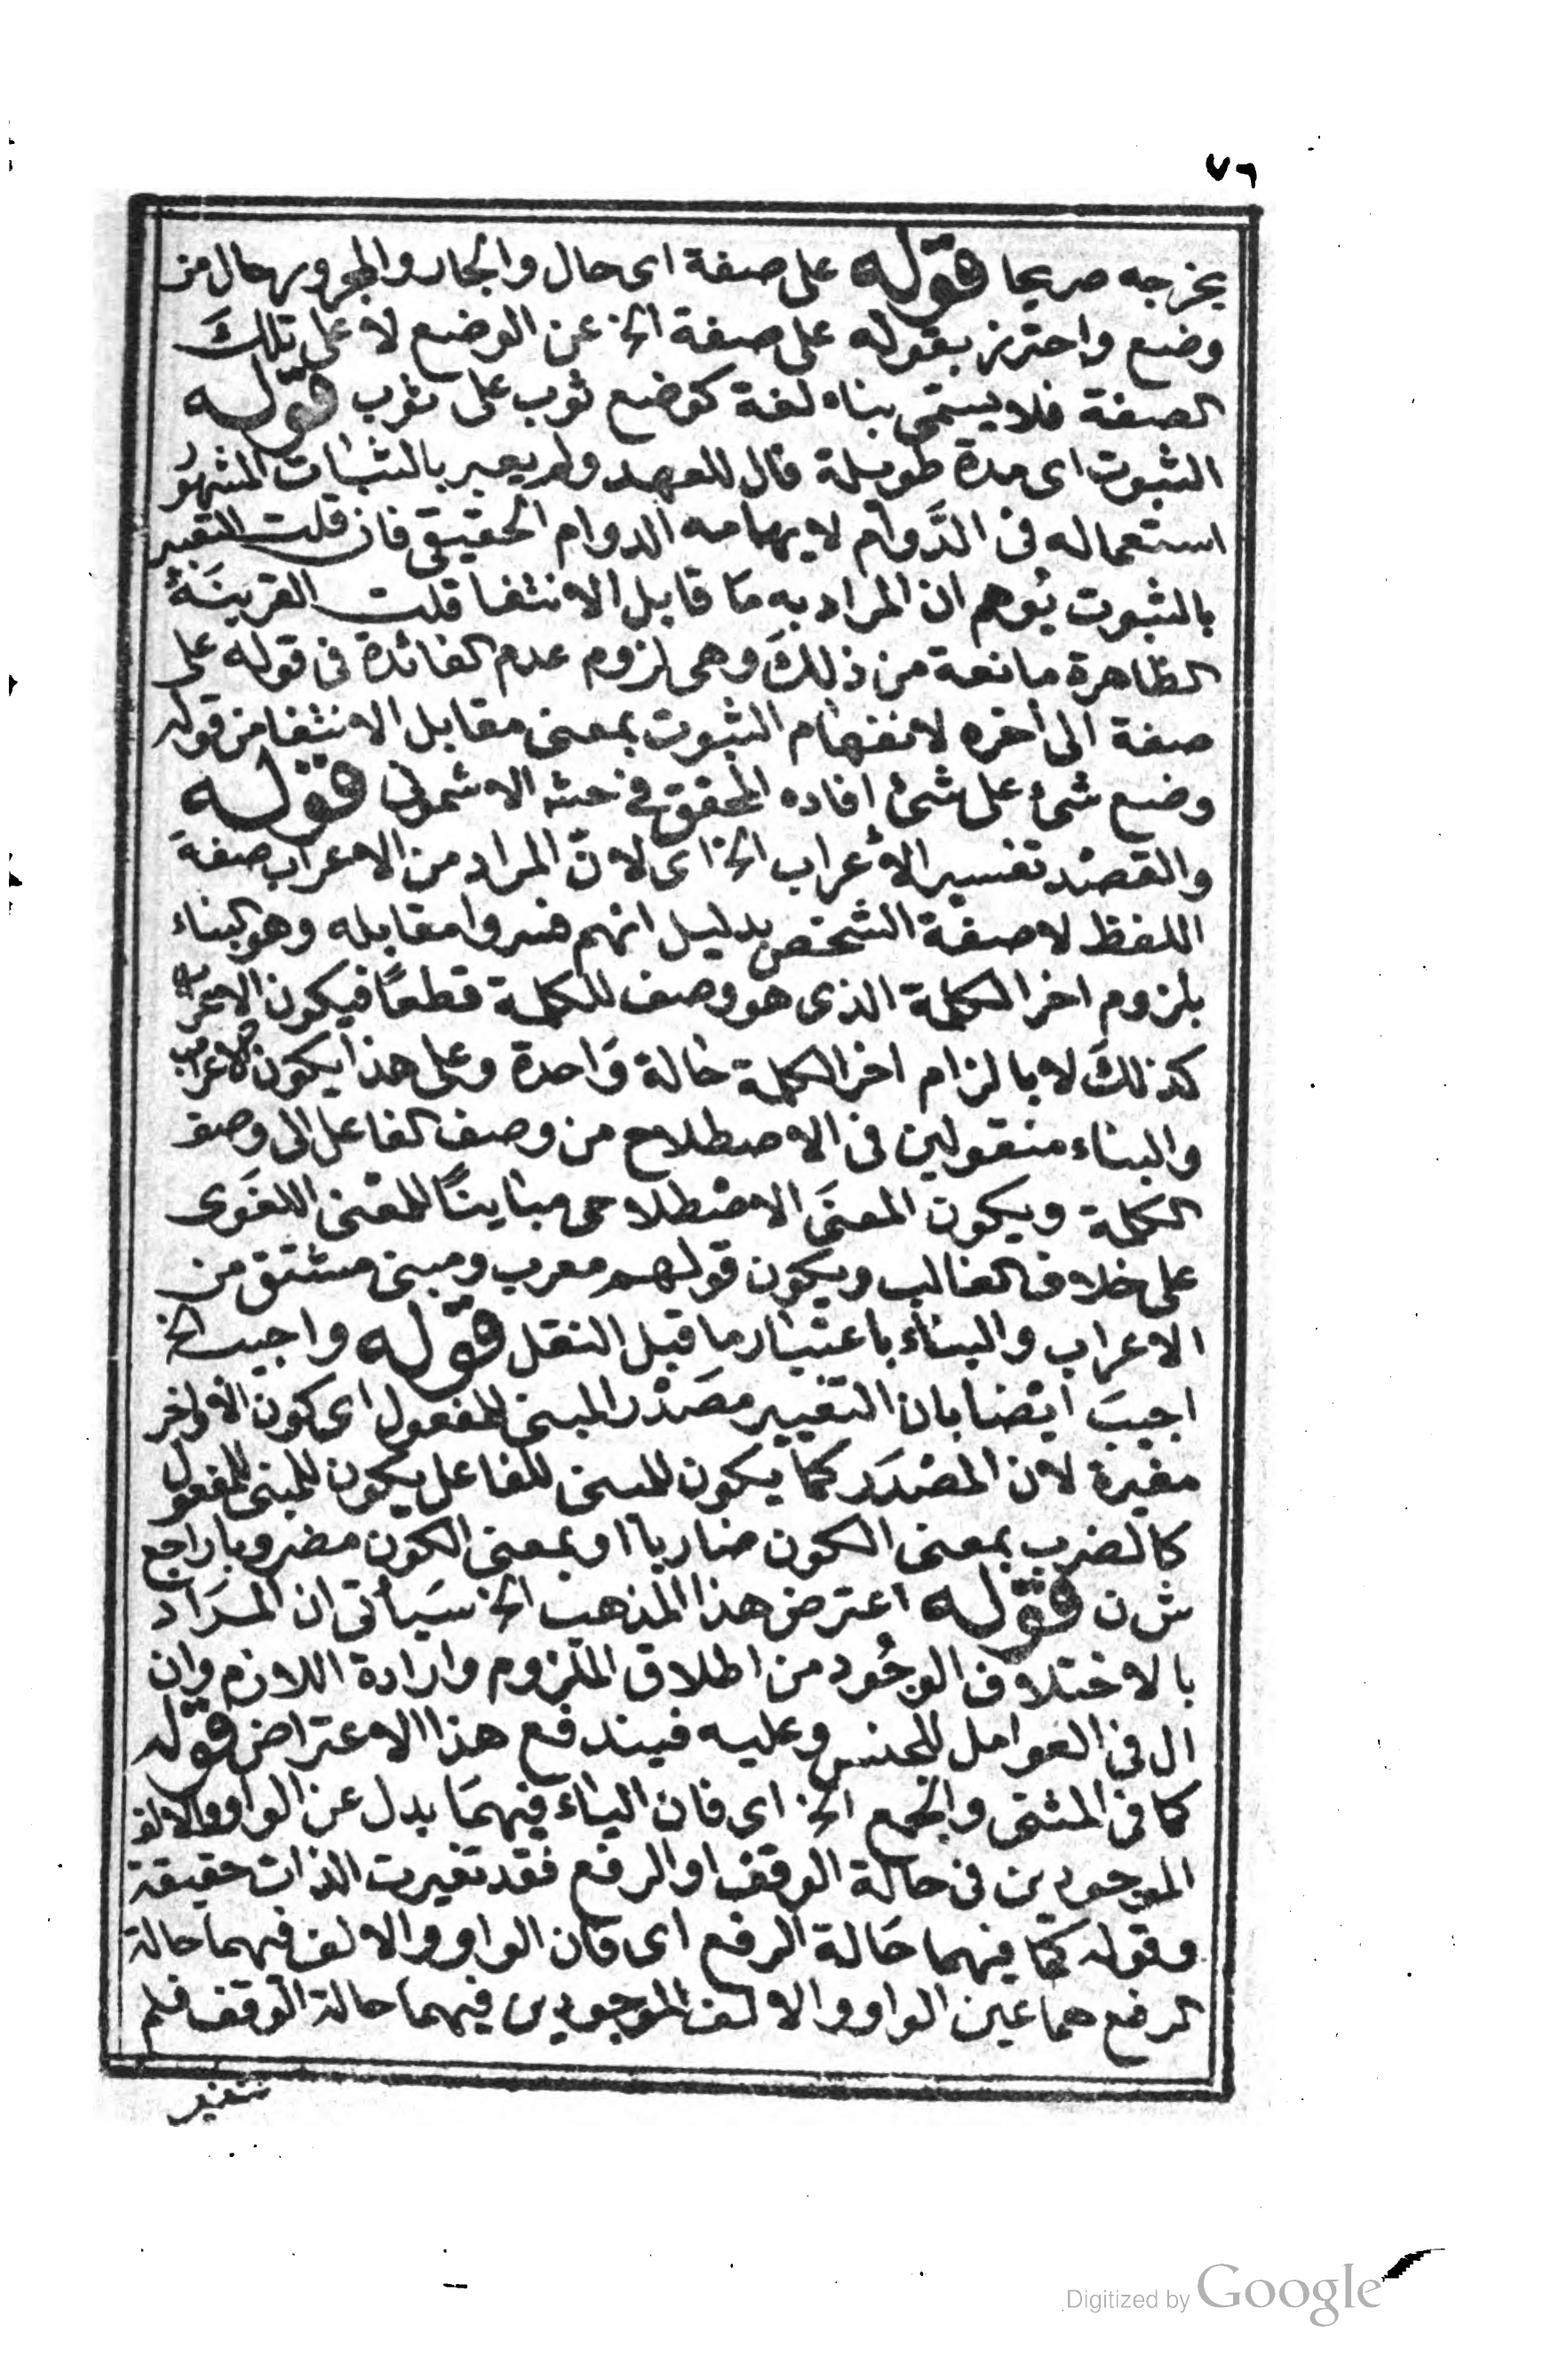 ٧٦
يخرجه صريحا قوله على صفة اى حال والجار والمجرور حال من
وضع واحترز بقوله على صفة الخ عن الوضع لا على تلكَ
الصفة فلا يسمى بناء لغة كوضع ثوب على ثوب قوله
الثبوت اى مدة طويلة فال للعهد ولم يعبر بالثبات المشهور
استعماله فى الدَّوام لايهامه الدوام الحقيقى فان قلت التعبير
بالثبوت يُوهم ان المراد به مَا قابل الانتفا قلت القرينَة
الظاهرة مانعة من ذلكَ وهى لزوم عدم الفائدة فى قوله على
صفة الى اخره لانفهام الثبوت بمعنى مقابل الانتفا من قوله
وضع شئ على شئ افاده المحقق فى حشه الاشمونى قوله
والقصْد تفسير الأعراب الخ اى لانّ المراد من الاعراب صفة
اللفظ لا صفة الشخص بدليل انهم فسروا مقابله وهو البناء
بلزوم اخر الكلمة الذى هو وصف للكلمة قطعًا فيكون الاعراب
كذلكَ لا بالزام اخر الكلمة حالة وَاحدة وعلى هذا يكون الاعراب
والبناء منقولين فى الاصطلاح من وصف الفاعل الى وصف
الكلمة ويكون المعنَى الاصْطلاحى مباينًا للمعْنى اللغَوى
على خلاف الغالب ويكون قولهم معرب ومبنى مشتق من
الاعراب والبناء باعتبار ما قبل النقل قوله واجيب الخ
اجيبَ ايْضا بان التغيير مصَدْر المبنى للمفعول اى كون الأواخر
مغيرة لان المصْدَر كمَا يكون للمبنى للفاعل يكون للمبنى للمفعول
كالضرب بمعنى الكون ضاربا او بمعنى الكون مضروبا راجع
ش ن قوله اعترض هذا المذهب الخ سَيأتى ان المرَاد
بالاختلاف الوجُود من اطلاق الملزوم وارادة اللازم وان
ال فى العوامل للجنس وعليه فيندفع هذا الاعتراض قوله
كما فى المثنى والجمع الخ اى فان الياء فيهمَا بدل عن الواو والالف
الموجودين فى حالة الوقف او الرفع فقد تغيرت الذات حقيقة
وقوله كما فيهما حَالة الرفع اى فان الواو والالف فيهما حالة
الرفع هما عين الواو والالف الموجودين فيهما حالة الوقف فلم
تتغير
Digitized by Google